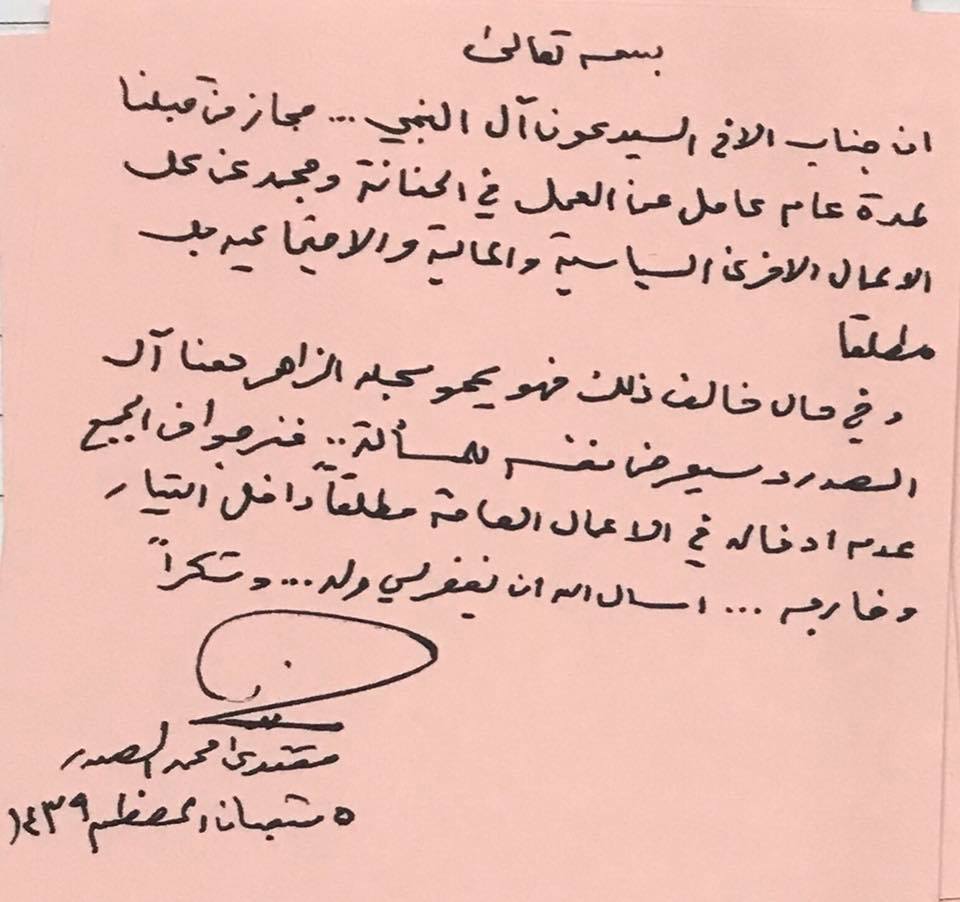 بسمه تعالى
ان جناب الاخ السيد عون آل النبي ... مجاز من قبلنا
لمدة عام كامل عن العمل في الحنانة ومجمد عن كل
الاعمال الاخرى السياسية والمالية والاجتماعيه بل
مطلقا
وفي حال خالف ذلك فهو يمحو سجله الزاهر معنا آل
الصدر وسيعرض نفسه للمسألة .. فنرجو من الجميع
عدم ادخاله في الاعمال العامة مطلقاً داخل التيار
وخارجه ... اسال الله ان يغفر لي وله ... وشكراً
مقتدى محمد الصدر
٥ شعبان المعظم ١٤٣٩